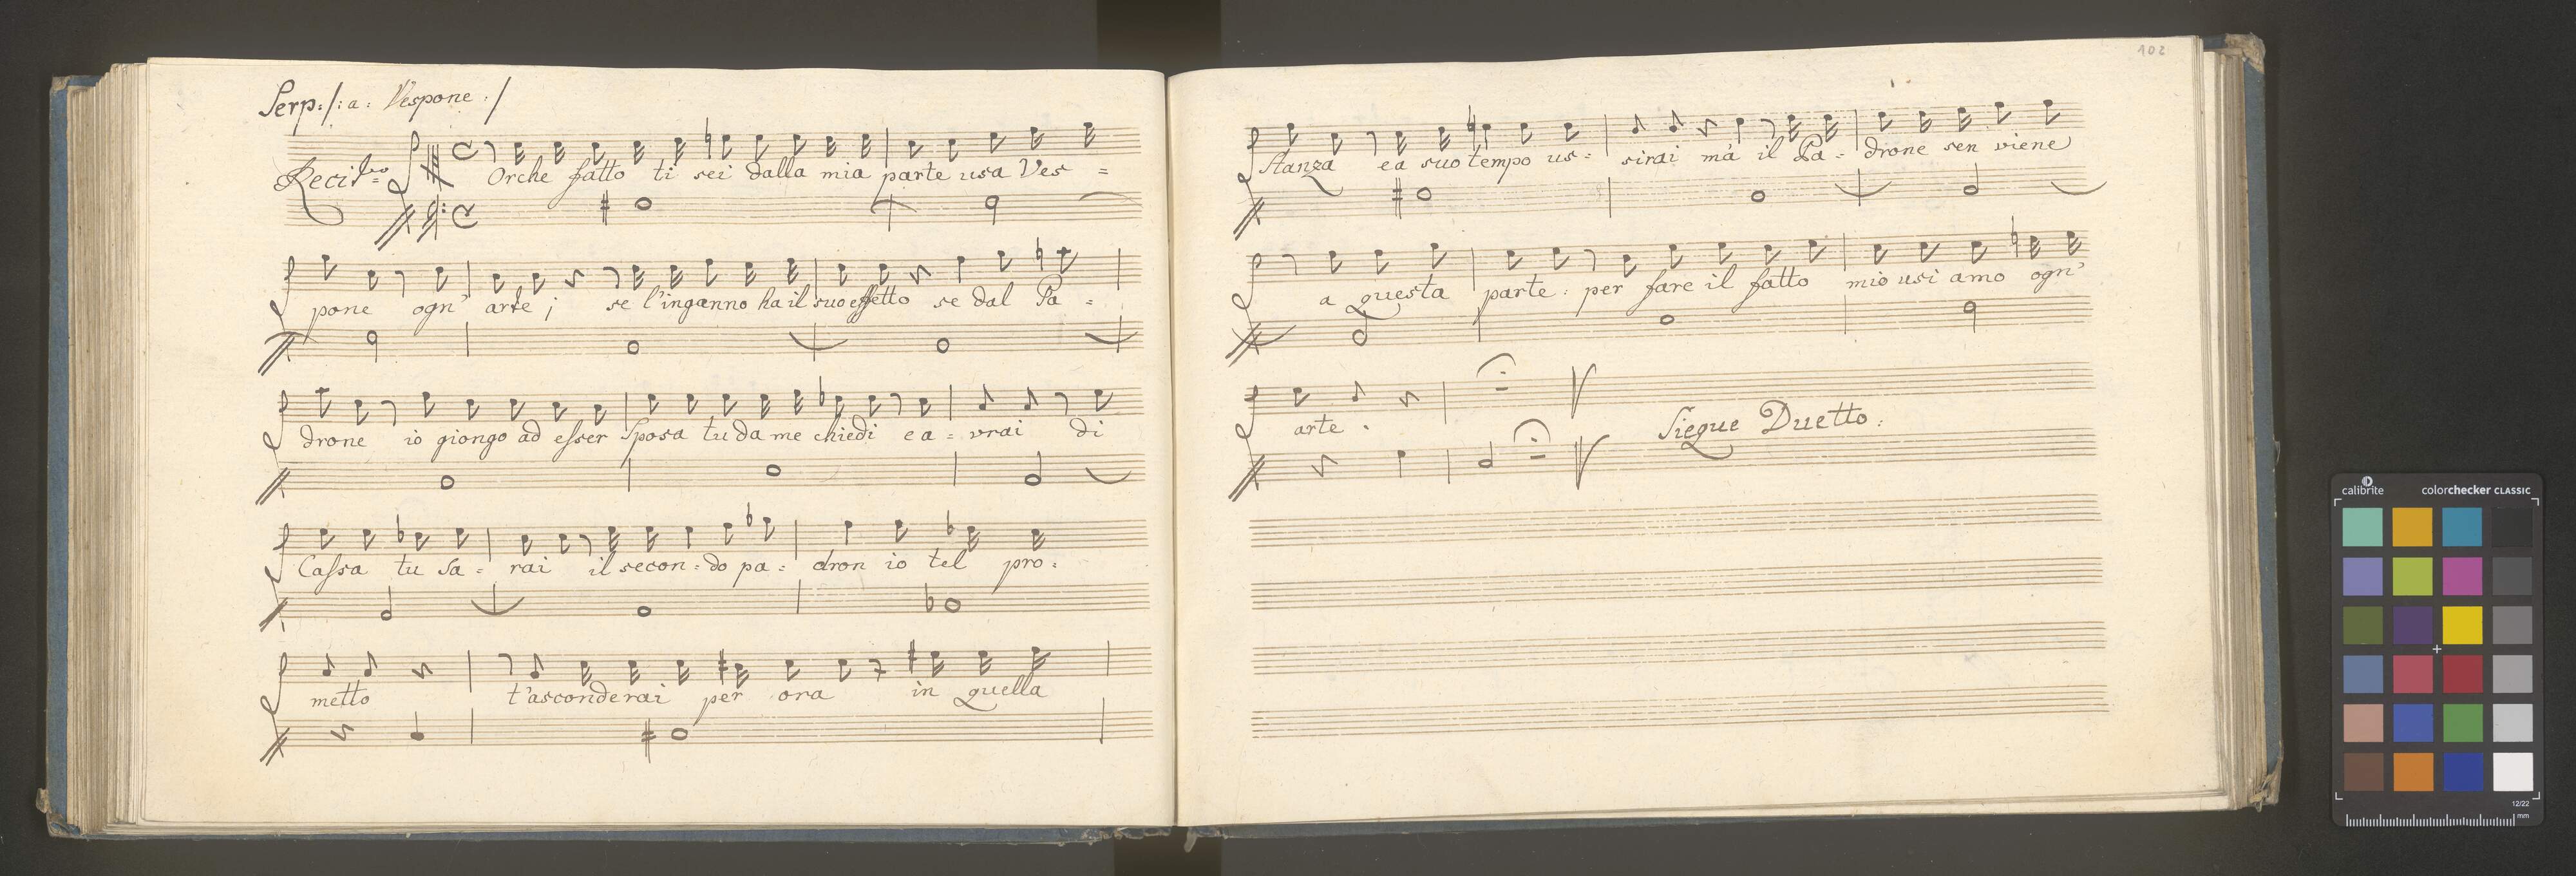 Serp:/: a: Vespone :/
Recit.vo Orche fatto ti sei dalla mia parte usa Ves =
pone ogn' arte ; se l'inganno ha il suo effetto se dal Pa =
drone io giongo ad esser Sposa tu da me chiedi e a = vrai di
Cassa tu sa = rai il secon = do pa = dron io tel pro =
metto t'asconderai per ora in quella
102
Stanza e a suo tempo us = sirai mà il Pa = drone sen viene
a questa parte : per fare il fatto mio usi amo ogn'
arte .
Siegue Duetto :
calibrite colorchecker CLASSIC
12/22
mm